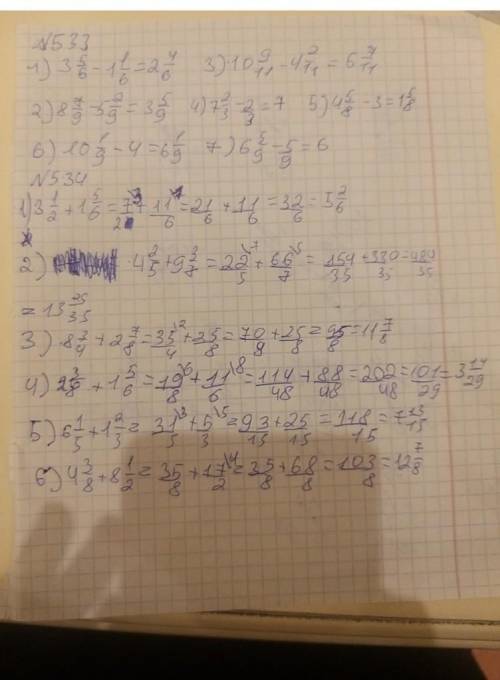 №533
1) 3 5/6 - 1 1/6 = 2 4/6 3) 10 9/11 - 4 2/11 = 6 7/11
2) 8 7/9 - 5 2/9 = 3 5/9 4) 7 2/3 - 2/3 = 7 5) 4 5/8 - 3 = 1 5/8
6) 10 1/9 - 4 = 6 1/9 7) 6 5/9 - 5/9 = 6
№534
1) 3 1/2 + 1 5/6 = 7/2 + 11/6 = 21/6 + 11/6 = 32/6 = 5 2/6
2) 4 2/5 + 9 3/7 = 22/5 \7 + 66/7 \5 = 154/35 + 330/35 = 484/35
= 13 29/35
3) 8 3/4 + 2 7/8 = 35/4 \2 + 25/8 = 70/8 + 25/8 = 95/8 = 11 7/8
4) 2 3/8 + 1 5/6 = 19/8 \6 + 11/6 \8 = 114/48 + 88/48 = 202/48 = 101/29 = 3 14/29
5) 6 1/5 + 1 2/3 = 31/5 \3 + 5/3 \5 = 93/15 + 25/15 = 118/15 = 7 13/15
6) 4 3/8 + 8 1/2 = 35/8 + 17/2 \4 = 35/8 + 68/8 = 103/8 = 12 7/8